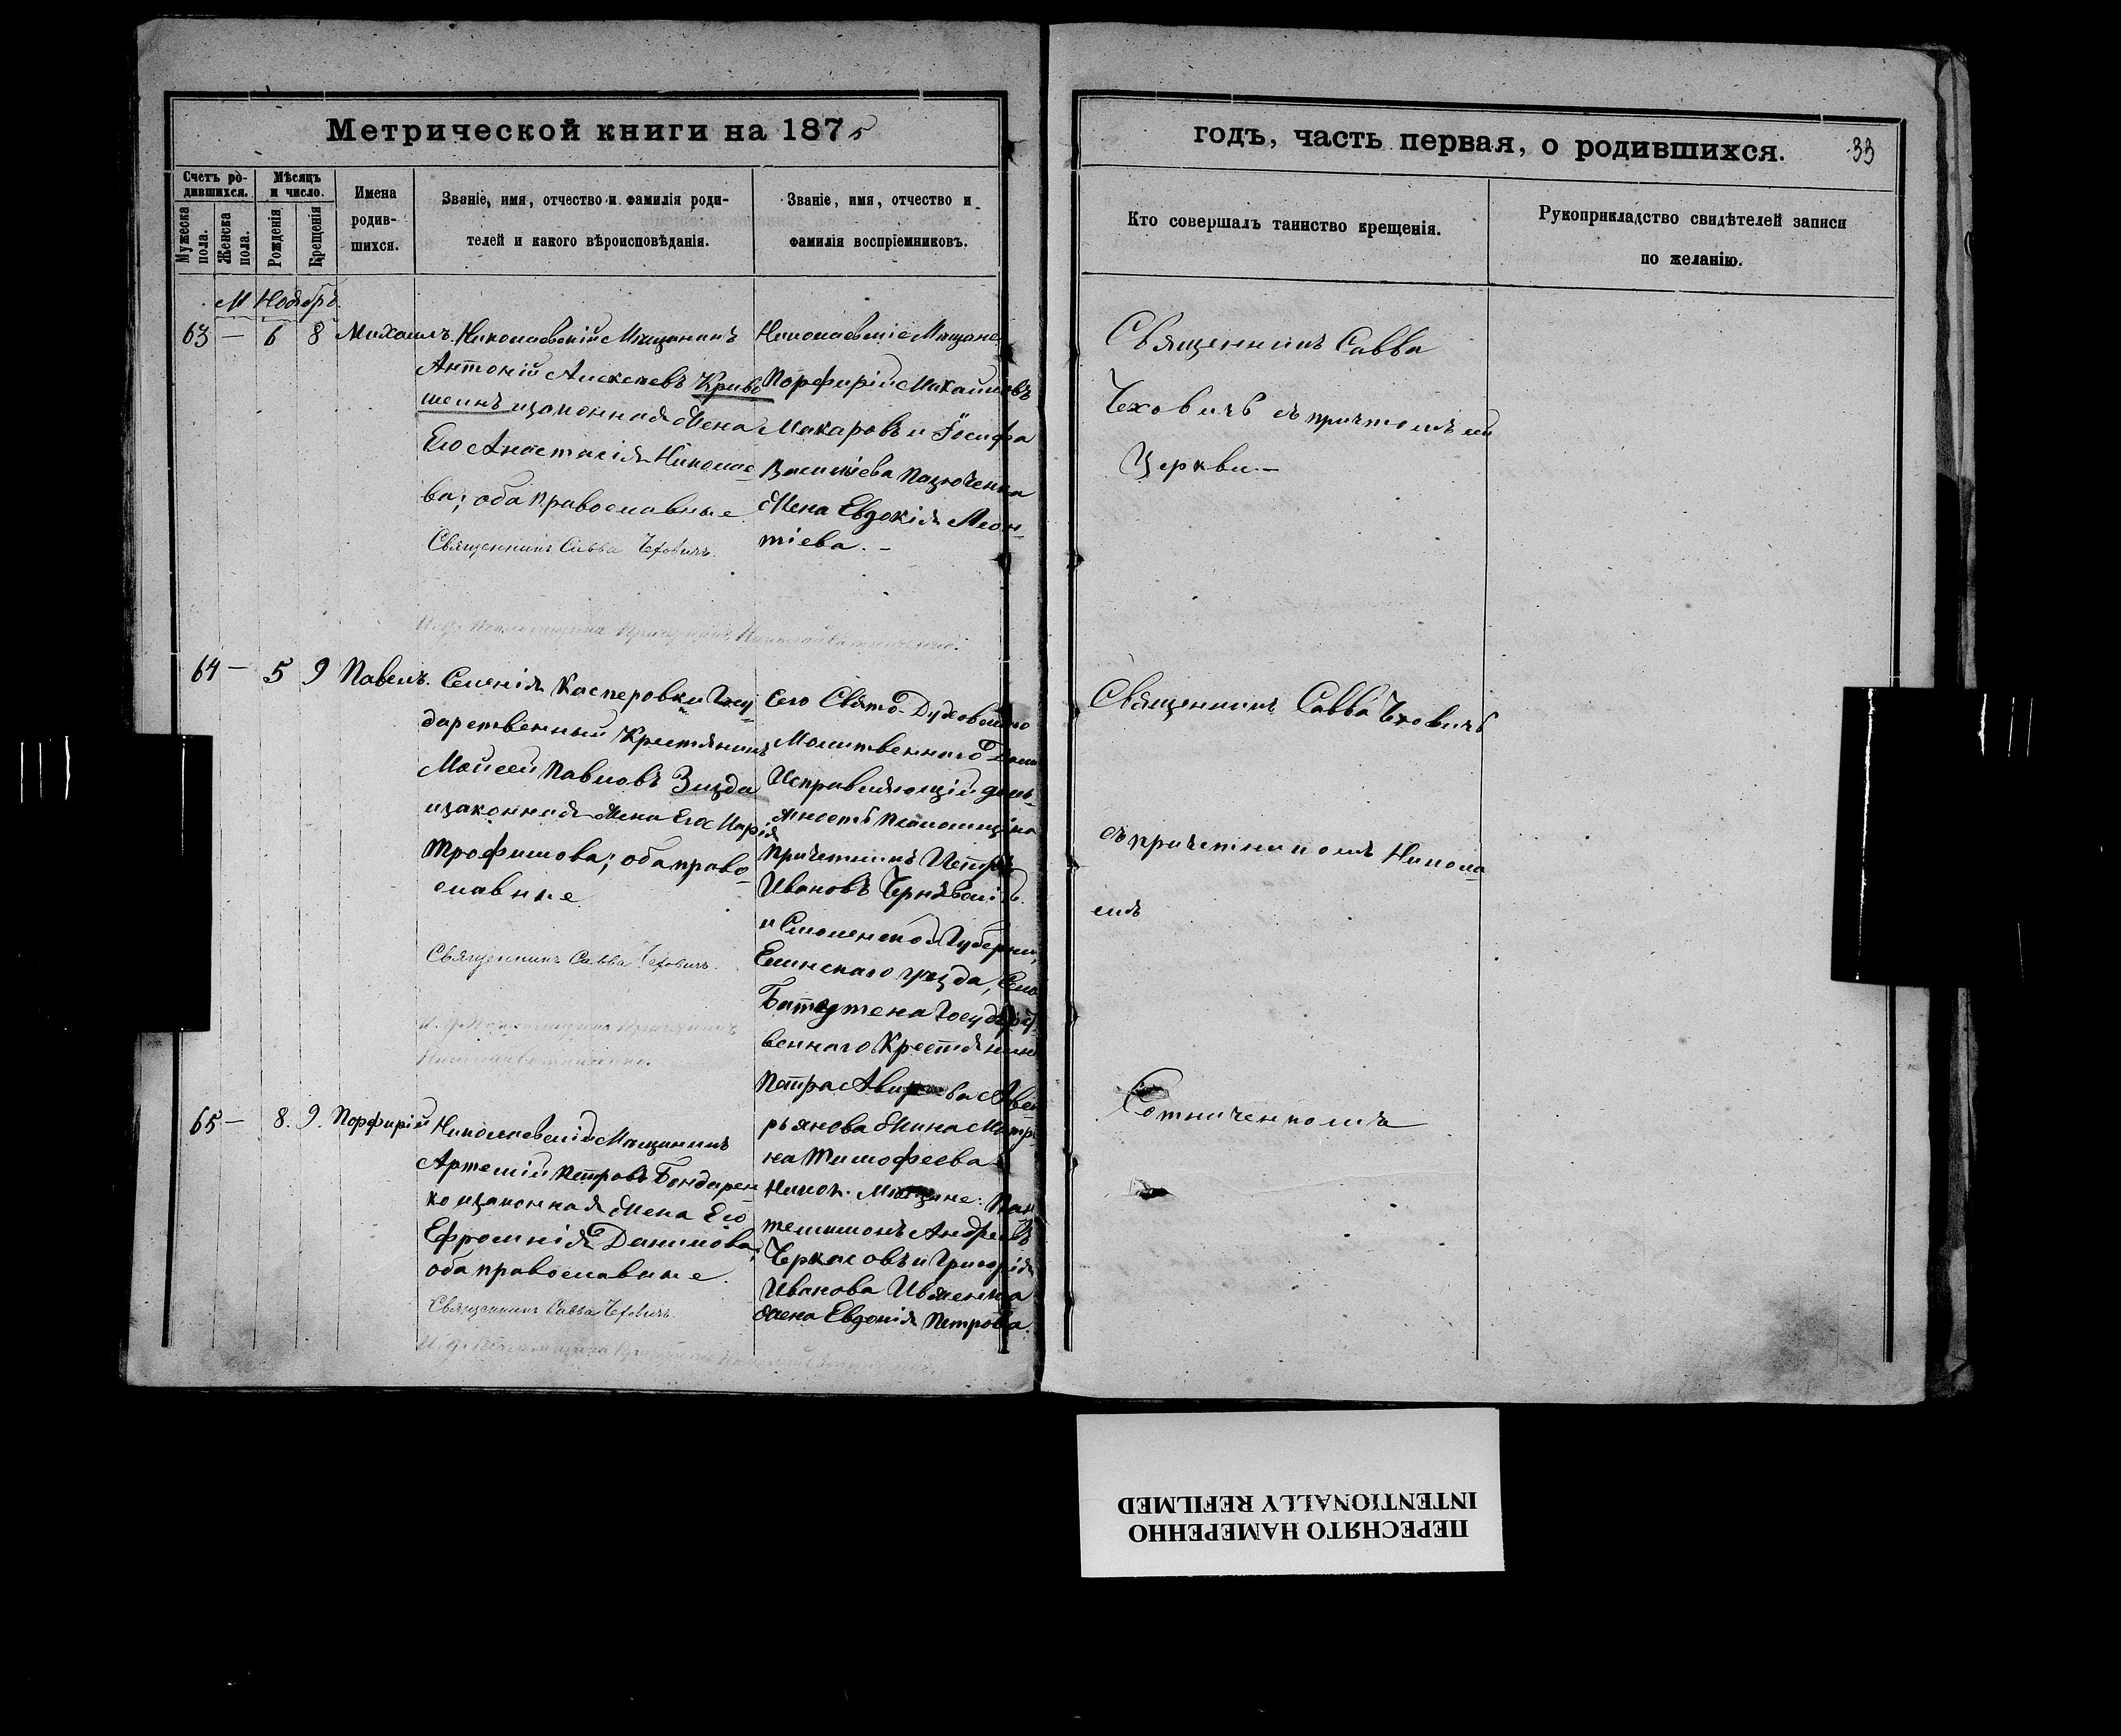 Метрической книги на 1875
годъ, часть первая, о родившихся.
33
Счетъ ро-
дившихся.
Мужеска пола.
Женска пола.
Мѣсяцъ
и число.
Рожденія
Крещенія
Имена
родив-
шихся.
Званіе, имя, отчество и фамилія роди-
телей и какого вѣроисповѣданія.
Званіе, имя, отчество и
фамилія воспріемниковъ.
Кто совершалъ таинство крещенія.
Рукоприкладство свидѣтелей записи
по желанію.
М Ноябрь
63 — 6 8 Михаилъ.
Николаевскій Мѣщанинъ
Антоній Алексѣевъ Криво
шеинъ изаконная жена
Его Анастасія Николае
ва; оба православные
Священникъ Савва Чеховичъ.
Николаевскіе Мѣщане
Порфирій Михайловъ
Макаровъ и Іосифа
Васильева
жена Евдокія Леон-
тіева. –
Священникъ Савва
Чеховичъ съ причтомъ
Церкви. –
И. д. Псаломщика Причетникъ Николай Сотниченко.
64 — 5 9 Павелъ.
Селенія Касперовки Госу
дарственный Крестянинъ
Моисей Павловъ Зизда
изаконная жена Его Марія
Трофимова; оба право-
славные
Священникъ Савва Чеховичъ.
И. д. Псаломщика Причетникъ
Николай Сотниченко.
Сего Свято-Духовского
Молитвенного Дома
Исправляющій долж-
жность Псаломщика
Причетникъ Петръ
Ивановъ
и Смоленской Губерніи,
Елинскаго уезда, Села
Государст
венного Крестянина
Петра
рьянова жена Матрі
на Тимофеева
Священникъ Савва Чеховичъ
съ причетникомъ Никола
емъ
Сотниченкомъ
65 — 8. 9. Порфирій
Николаевскій Мѣщанинъ
Артемій Петровъ Бондарен
ко изаконная жена Его
Ефросинія Данилова,
оба православные.
Священникъ Савва Чеховичъ.
И. д. Псаломщика Причетникъ Николай Сотниченко.
Никол. Мѣщане: Пан
телимонъ Андреевъ
Черкасовъ и Григорія
Иванова Ивженка
жена Евдокія Петрова.
ПЕРЕСНЯТО НАМЕРЕННО
INTENTIONALLY REFILMED